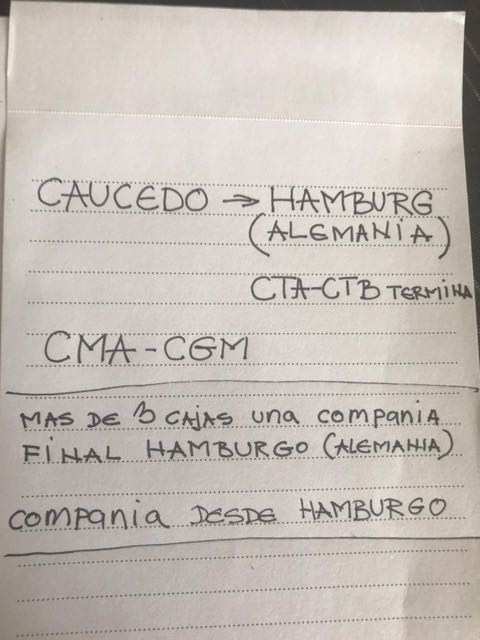 CAUCEDO → HAMBURG
(ALEMANIA)
CTA-CTB TERMINA
CMA-CGM
MAS DE 3 CAJAS una compania
FINAL HAMBURGO (ALEMANIA)
compania DESDE HAMBURGO